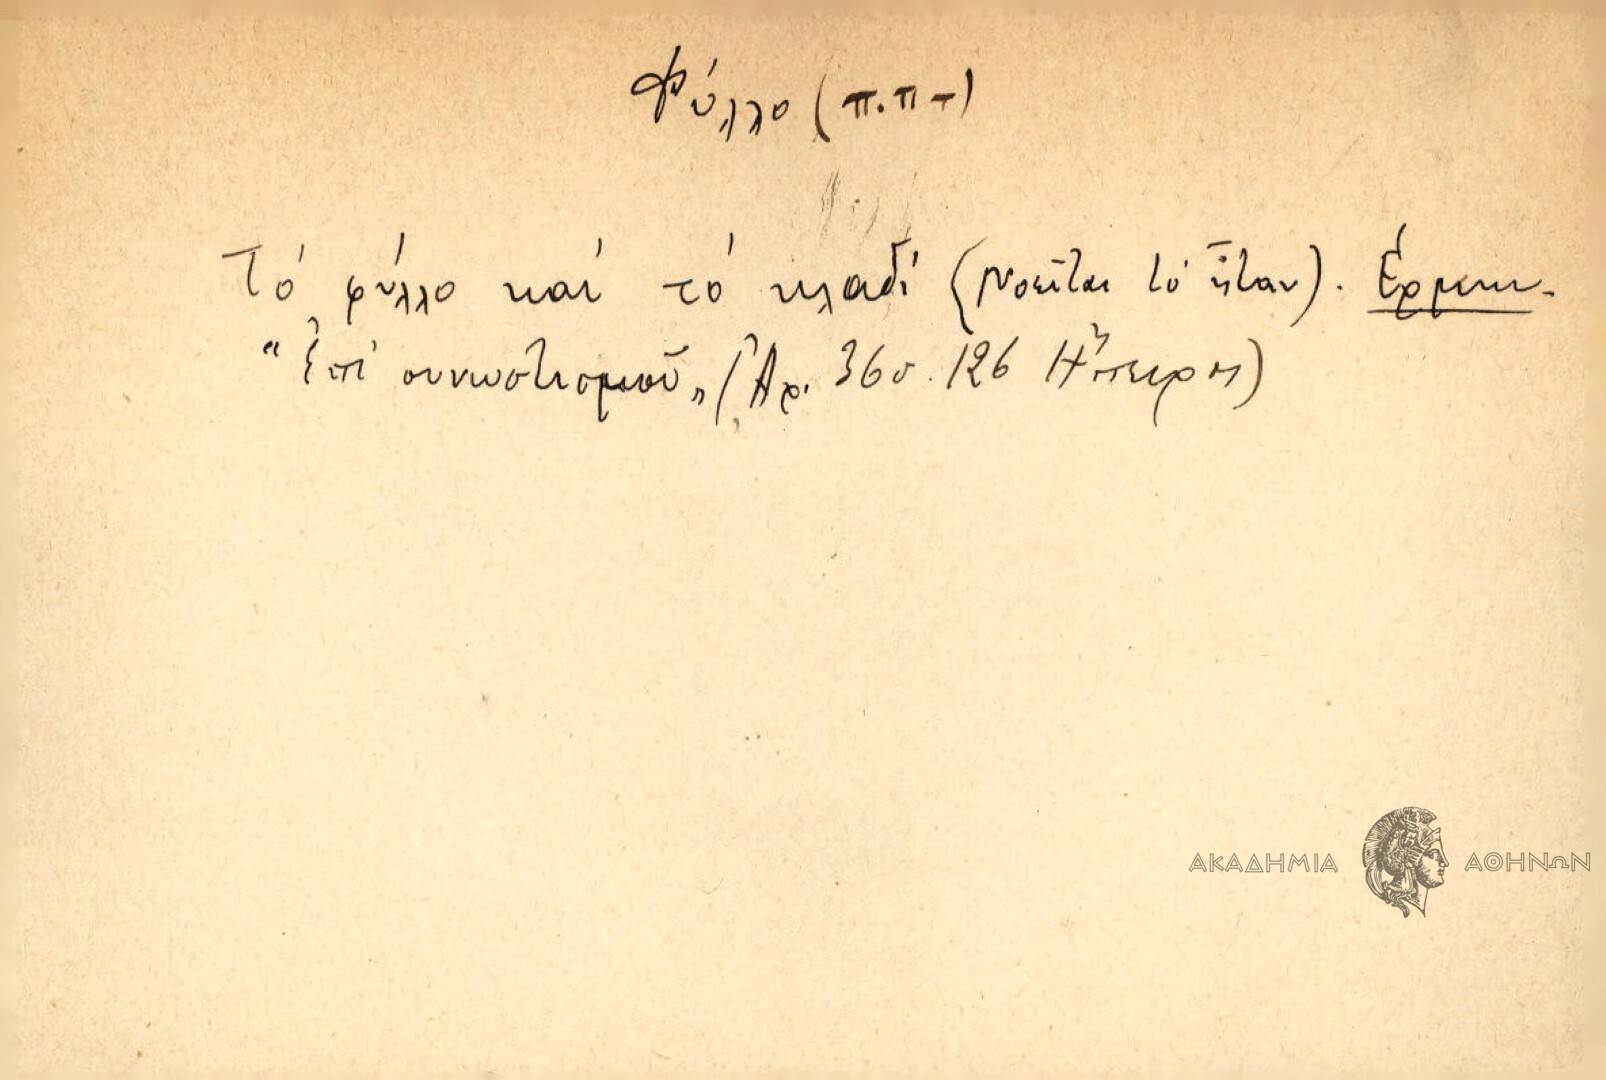 Φύλλο (π.π-)
Τό φύλλο καί τό κλαδί (Νοεῖται τό ἦταν). Ἑρμην.
"Ἐπί συνωστισμοῦ„ (Ἀρ. 36 σ. 126 Ἤπειρος)
ΑΚΑΔΗΜΙΑ ΑΘΗΝΩΝ